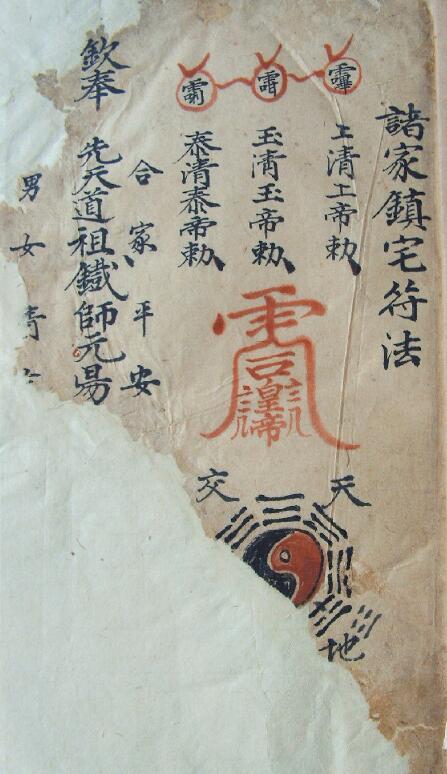 諸家鎮宅符法
上清上帝勅
玉清玉帝勅
泰清泰帝勅
皇帝
天
地
交
合家平安
欽奉 先天道祖鐵師元
男女清